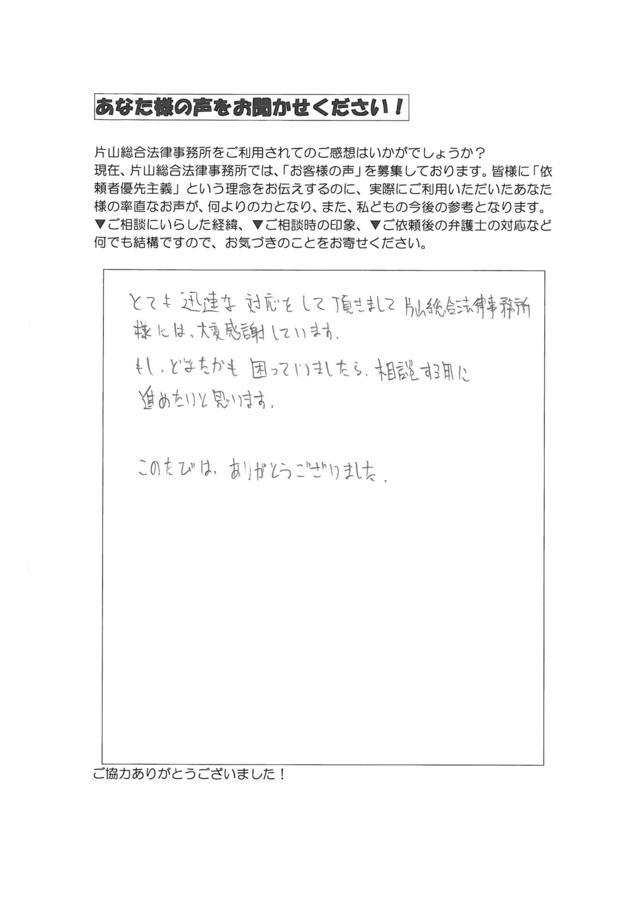 あなた様の声をお聞かせください！
片山総合法律事務所をご利用されてのご感想はいかがでしょうか？
現在、片山総合法律事務所では、「お客様の声」を募集しております。皆様に「依
頼者優先主義」という理念をお伝えするのに、実際にご利用いただいたあなた
様の率直なお声が、何よりの力となり、また、私どもの今後の参考となります。
▼ご相談にいらした経緯、▼ご相談時の印象、▼ご依頼後の弁護士の対応など
何でも結構ですので、お気づきのことをお寄せください。
とても迅速な対応をして頂きまして片山総合法律事務所
様には、大変感謝しています。
もし、どなたかも困っていましたら、相談する用に
進めたいと思います。
このたびは、ありがとうございました。
ご協力ありがとうございました！